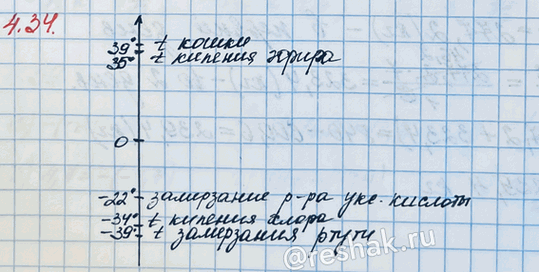 4.34.
39° t кошки
35° t кипения эфира
0
-22° замерзание р-ра укс. кислоты
-34° t кипения хлора
-39° t замерзания ртути
@reshak.ru